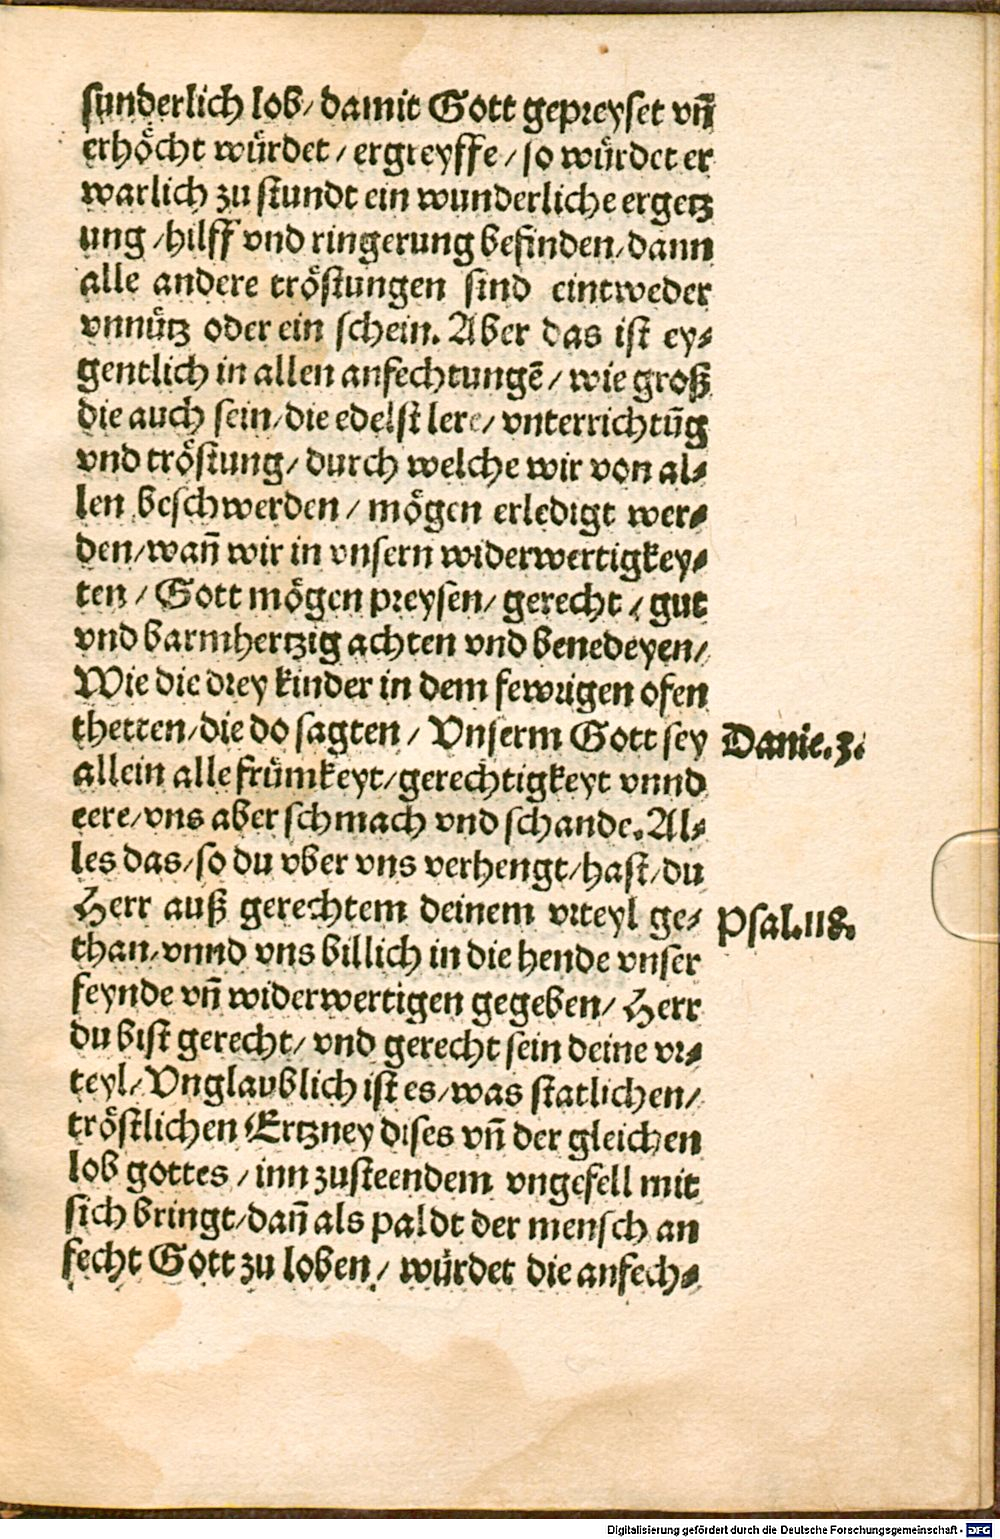 sunderlich lob/ damit Gott gepreyset vñ
erhöcht würdet / ergreyffe / so würdet er
warlich zu stundt ein wunderliche ergetz
ung / hilff vnd ringerung befinden/ dann
alle andere tröstungen sind eintweder
vnnütz oder ein schein. Aber das ist ey⸗
gentlich in allen anfechtungē / wie groß
die auch sein/ die edelst lere/ vnterrichtūg
vnd tröstung/ durch welche wir von al⸗
len beschwerden / mögen erledigt wer⸗
den/ wañ wir in vnsern widerwertigkey⸗
ten / Gott mögen preysen/ gerecht / gut
vnd barmhertzig achten vnd benedeyen/
Wie die drey kinder in dem fewrigen ofen
thetten/ die do sagten / Vnserm Gott sey Danie.3.
allein alle frümkeyt/ gerechtigkeyt vnnd
eere/ vns aber schmach vnd schande. Al⸗
les das/ so du vber vns verhengt/ hast/ du
Herr auß gerechtem deinem vrteyl ge⸗ Psal.118.
than/ vnnd vns billich in die hende vnser
feynde vñ widerwertigen gegeben/ Herr
du bist gerecht/ vnd gerecht sein deine vr⸗
teyl/ Vnglaublich ist es/ was statlichen/
tröstlichen Ertzney dises vñ der gleichen
lob gottes / inn zusteendem vngefell mit
sich bringt/ dañ als paldt der mensch an
fecht Gott zu loben / würdet die anfech⸗
Digitalisierung gefördert durch die Deutsche Forschungsgemeinschaft - DFG